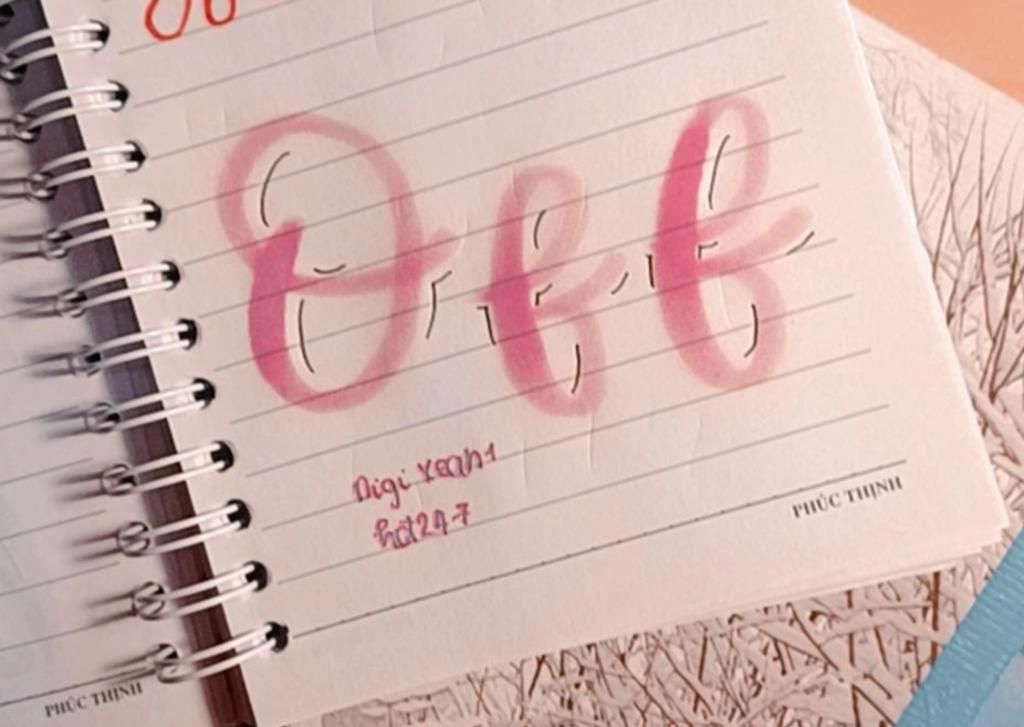 Off
Digi Yeah1
hot24-7
PHÚC THỊNH
PHÚC THỊNH